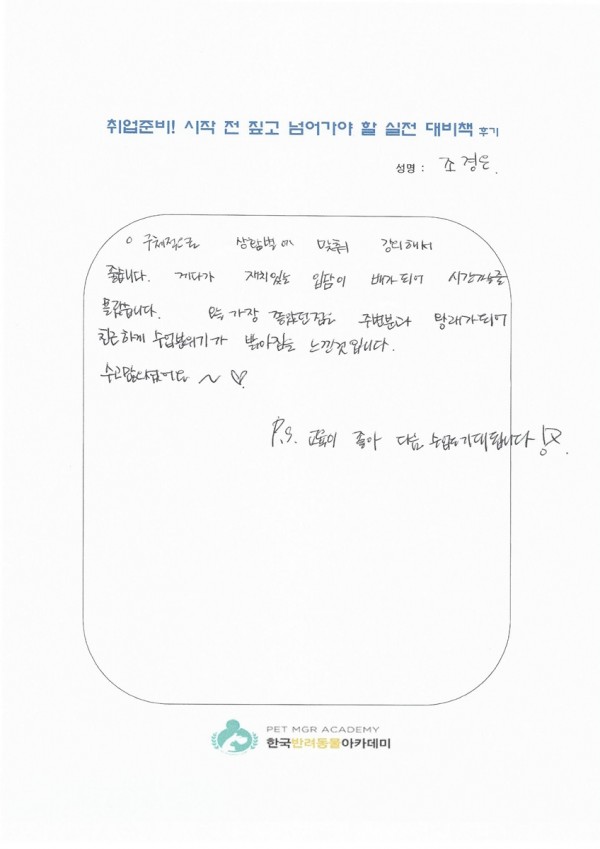 취업준비! 시작 전 짚고 넘어가야 할 실전 대비책 후기
성명 : 조경은.
구체적으로 상황별에 맞춰 강의해서
좋습니다. 게다가 재치있는 입담이 배가되어 시간가는줄
몰랐습니다. 가장 좋았던점은 주변분과 되어
친근하게 수업분위기가 밝아짐을 느낀것입니다.
수고많으셨어요 ~ ♡.
P.S. 교육이 좋아 다음 수업도 기대됩니다!♡.
PET MGR ACADEMY
한국반려동물아카데미